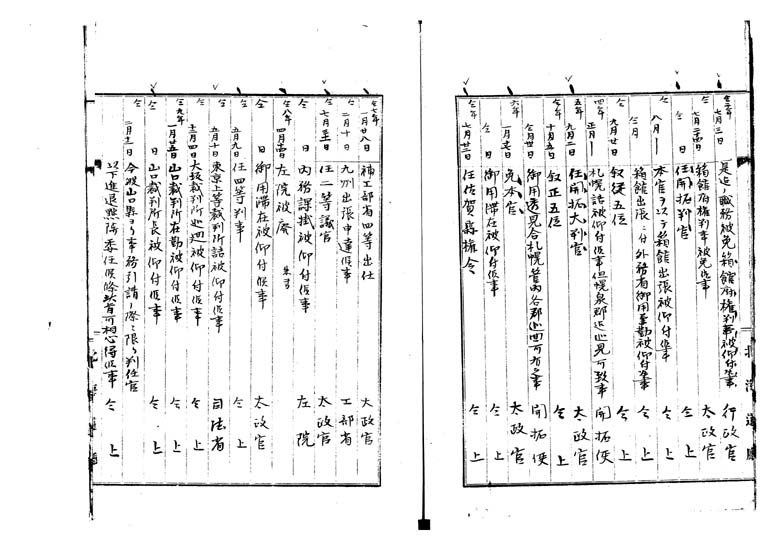 仝二年 七月三日 是迄ノ職務被免箱館府権判事被仰付候事 行政官
仝 七月二十四日 箱館府権判事被免候事 太政官
仝 日 任開拓判官 仝上
仝 八月 本官ヲ以テ箱館出張被仰付候事 仝上
仝 月 箱館出張ニ付外務省御用兼勤被仰付候事 仝上
仝 九月廿日 叙従五位 仝上
四年 正月 札幌詰被仰付候事但幌泉郡迄巡見可致事 開拓使
五年 九月二日 任開拓大判官 太政官
仝年 十月五日 叙正五位 仝上
仝 御用透見合札幌管内各郡巡回可有之事 開拓使
六年 一月 免本官 太政官
仝 日 御用滞在被仰付候事 仝上
仝 七月廿二日 任佐賀県権令 仝上
北海道庁
仝七年 一月廿八日 補工部省四等出仕 太政官
仝 二月十日 九州出張申達候事 工部省
仝 七月 任二等議官 太政官
仝 日 内務課掛被仰付候事 左院
仝八年 四月十四日 左院被廃
仝 日 御用滞在被仰付候事 太政官
仝 五月九日 任四等判事 仝上
仝 五月十日 東京上等裁判所詰被仰付候事 司法省
仝 十二月四日 大坂裁判所巡廻被仰付候事 仝上
仝九年 一月廿五日 山口裁判所在勤被仰付候事 仝上
仝 日 山口裁判所長被仰付候事 仝上
仝 二月十二日 今般山口県ヨリ事務引請ノ際ニ限リ判任官
以下進退黜陟委任候條此旨可相心得候事 仝上